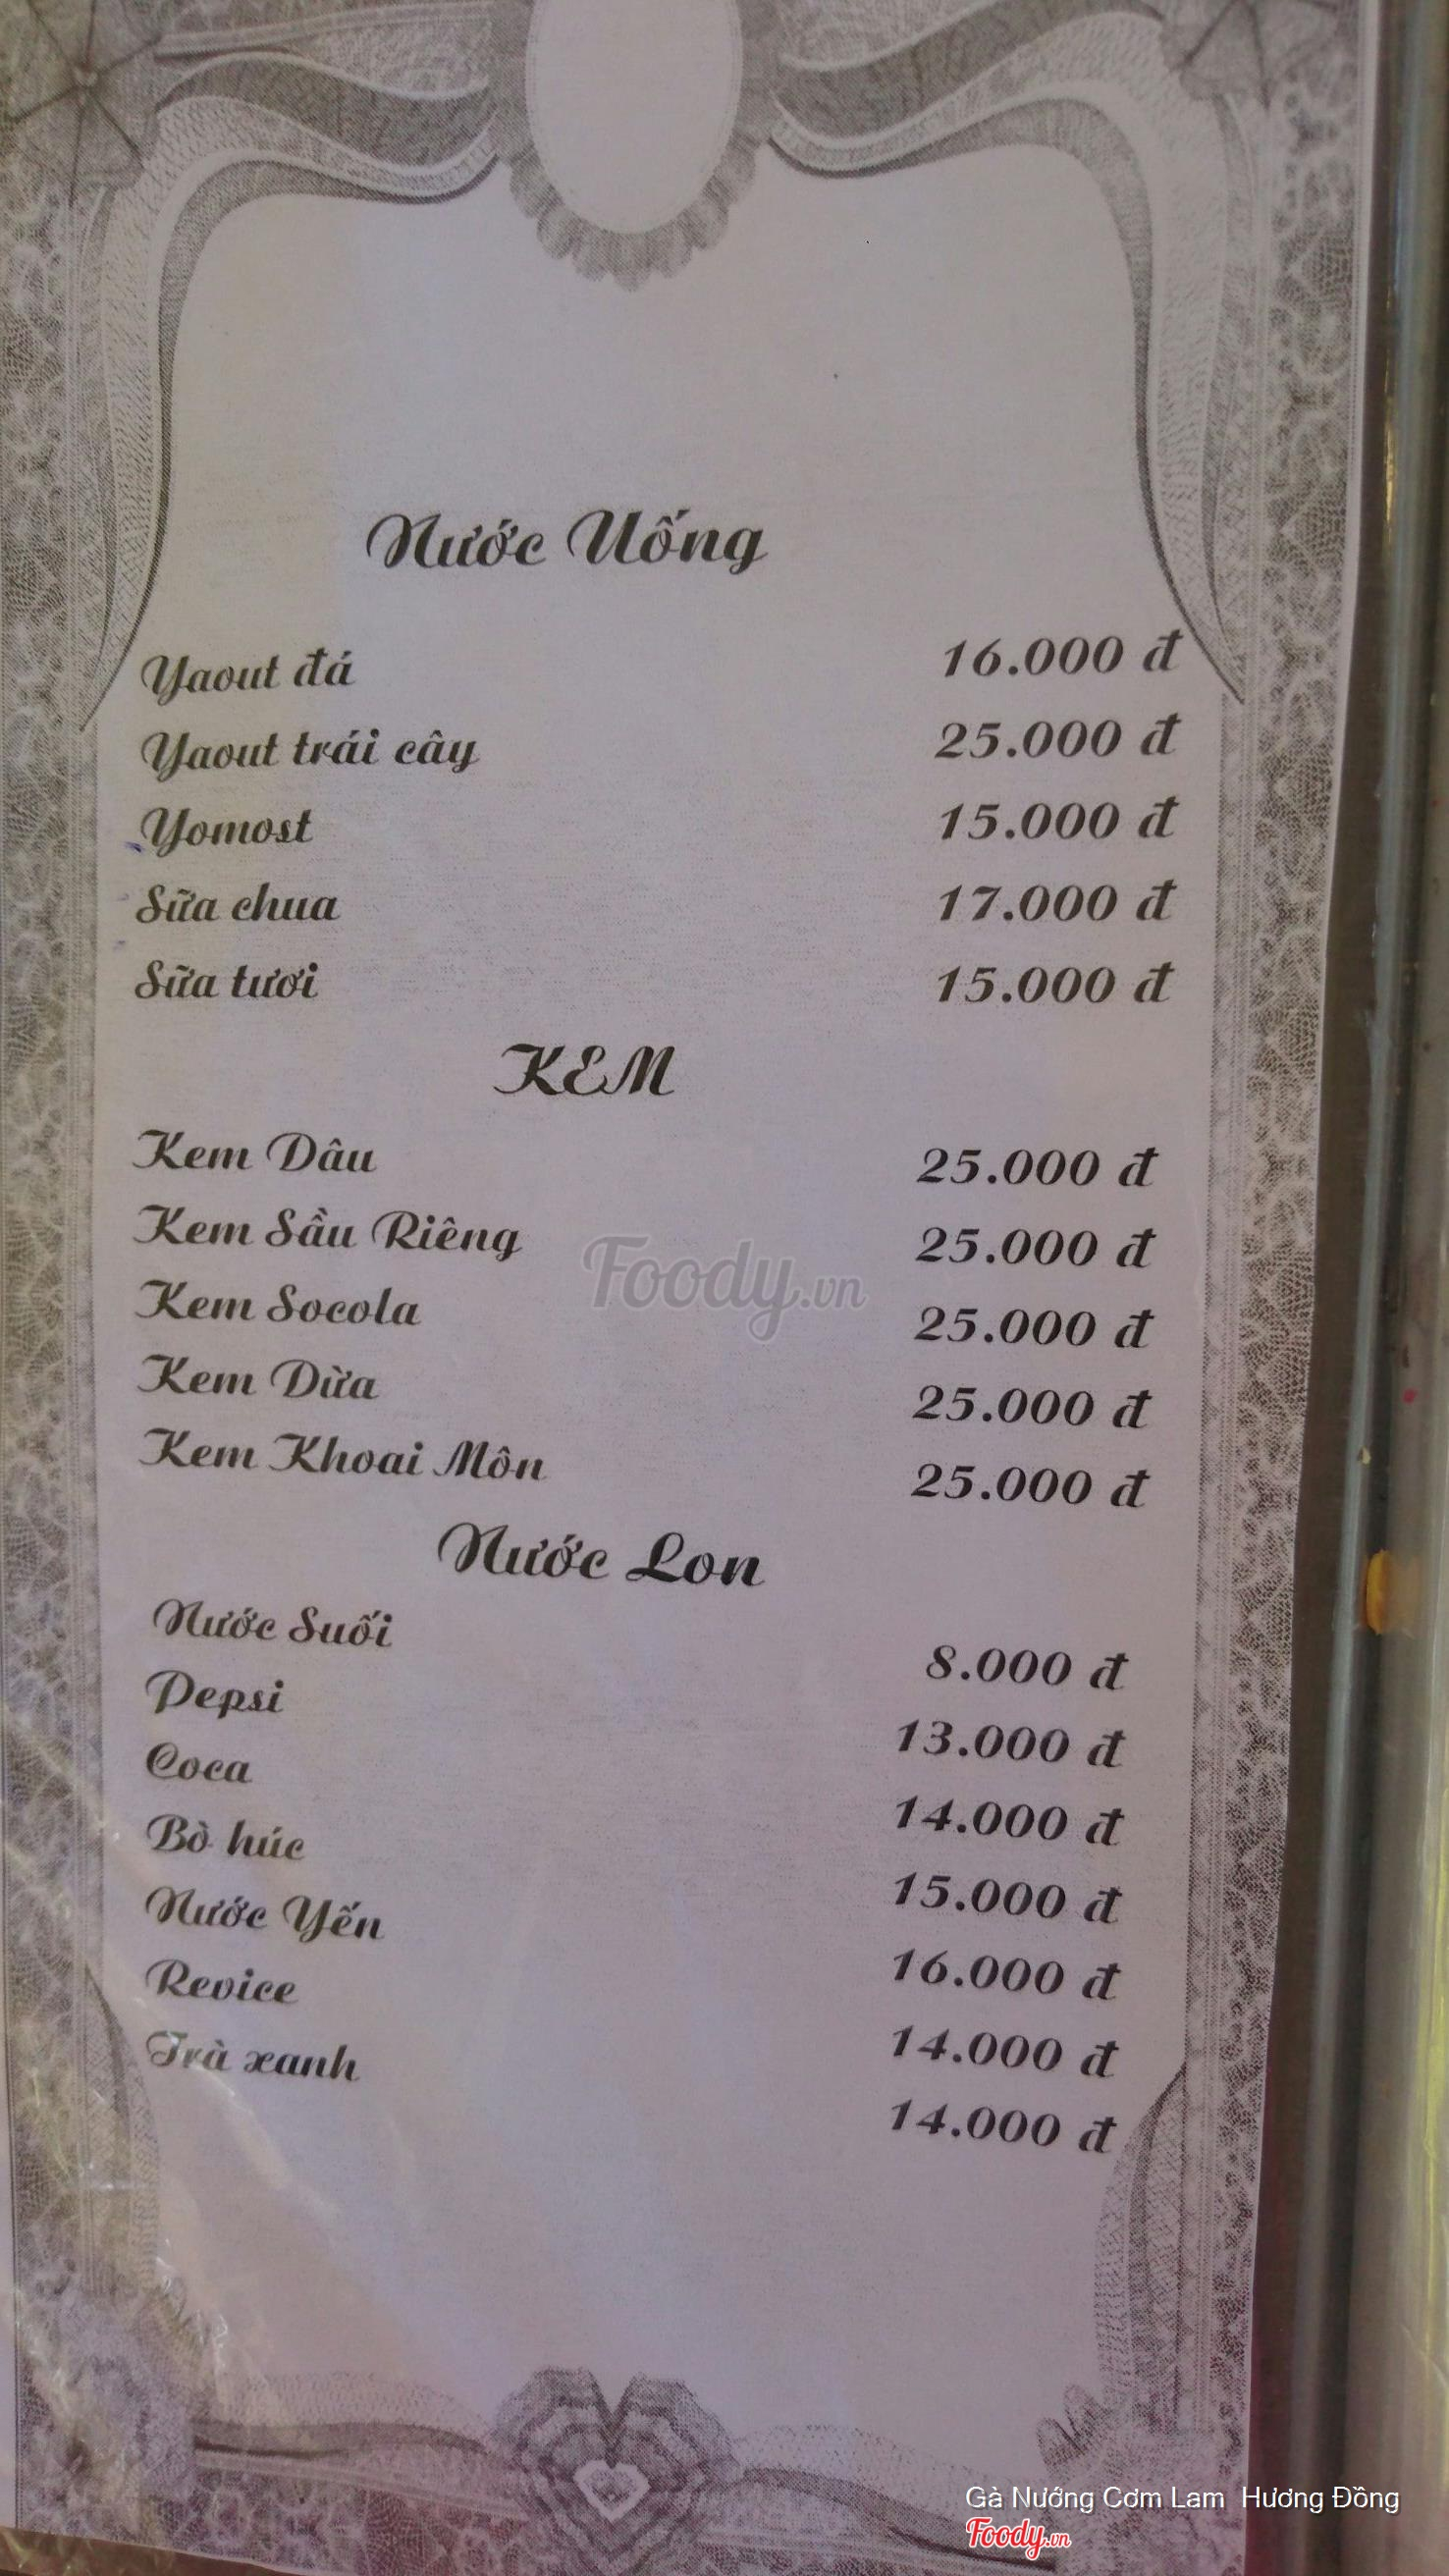 Nước Uống
Yaout đá 16.000 đ
Yaout trái cây 25.000 đ
Yomost 15.000 đ
Sữa chua 17.000 đ
Sữa tươi 15.000 đ
KEM
Kem Dâu 25.000 đ
Kem Sầu Riêng 25.000 đ
Foody.vn
Kem Socola 25.000 đ
Kem Dừa 25.000 đ
Kem Khoai Môn 25.000 đ
Nước Lon
Nước Suối 8.000 đ
Pepsi 13.000 đ
Coca 14.000 đ
Bò húc 15.000 đ
Nước Yến 16.000 đ
Revice 14.000 đ
Trà xanh 14.000 đ
Gà Nướng Cơm Lam Hương Đồng
Foody.vn